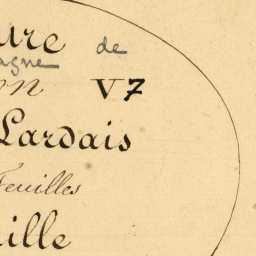 ure de
agne
on V7
Lardais
Feuilles
ille